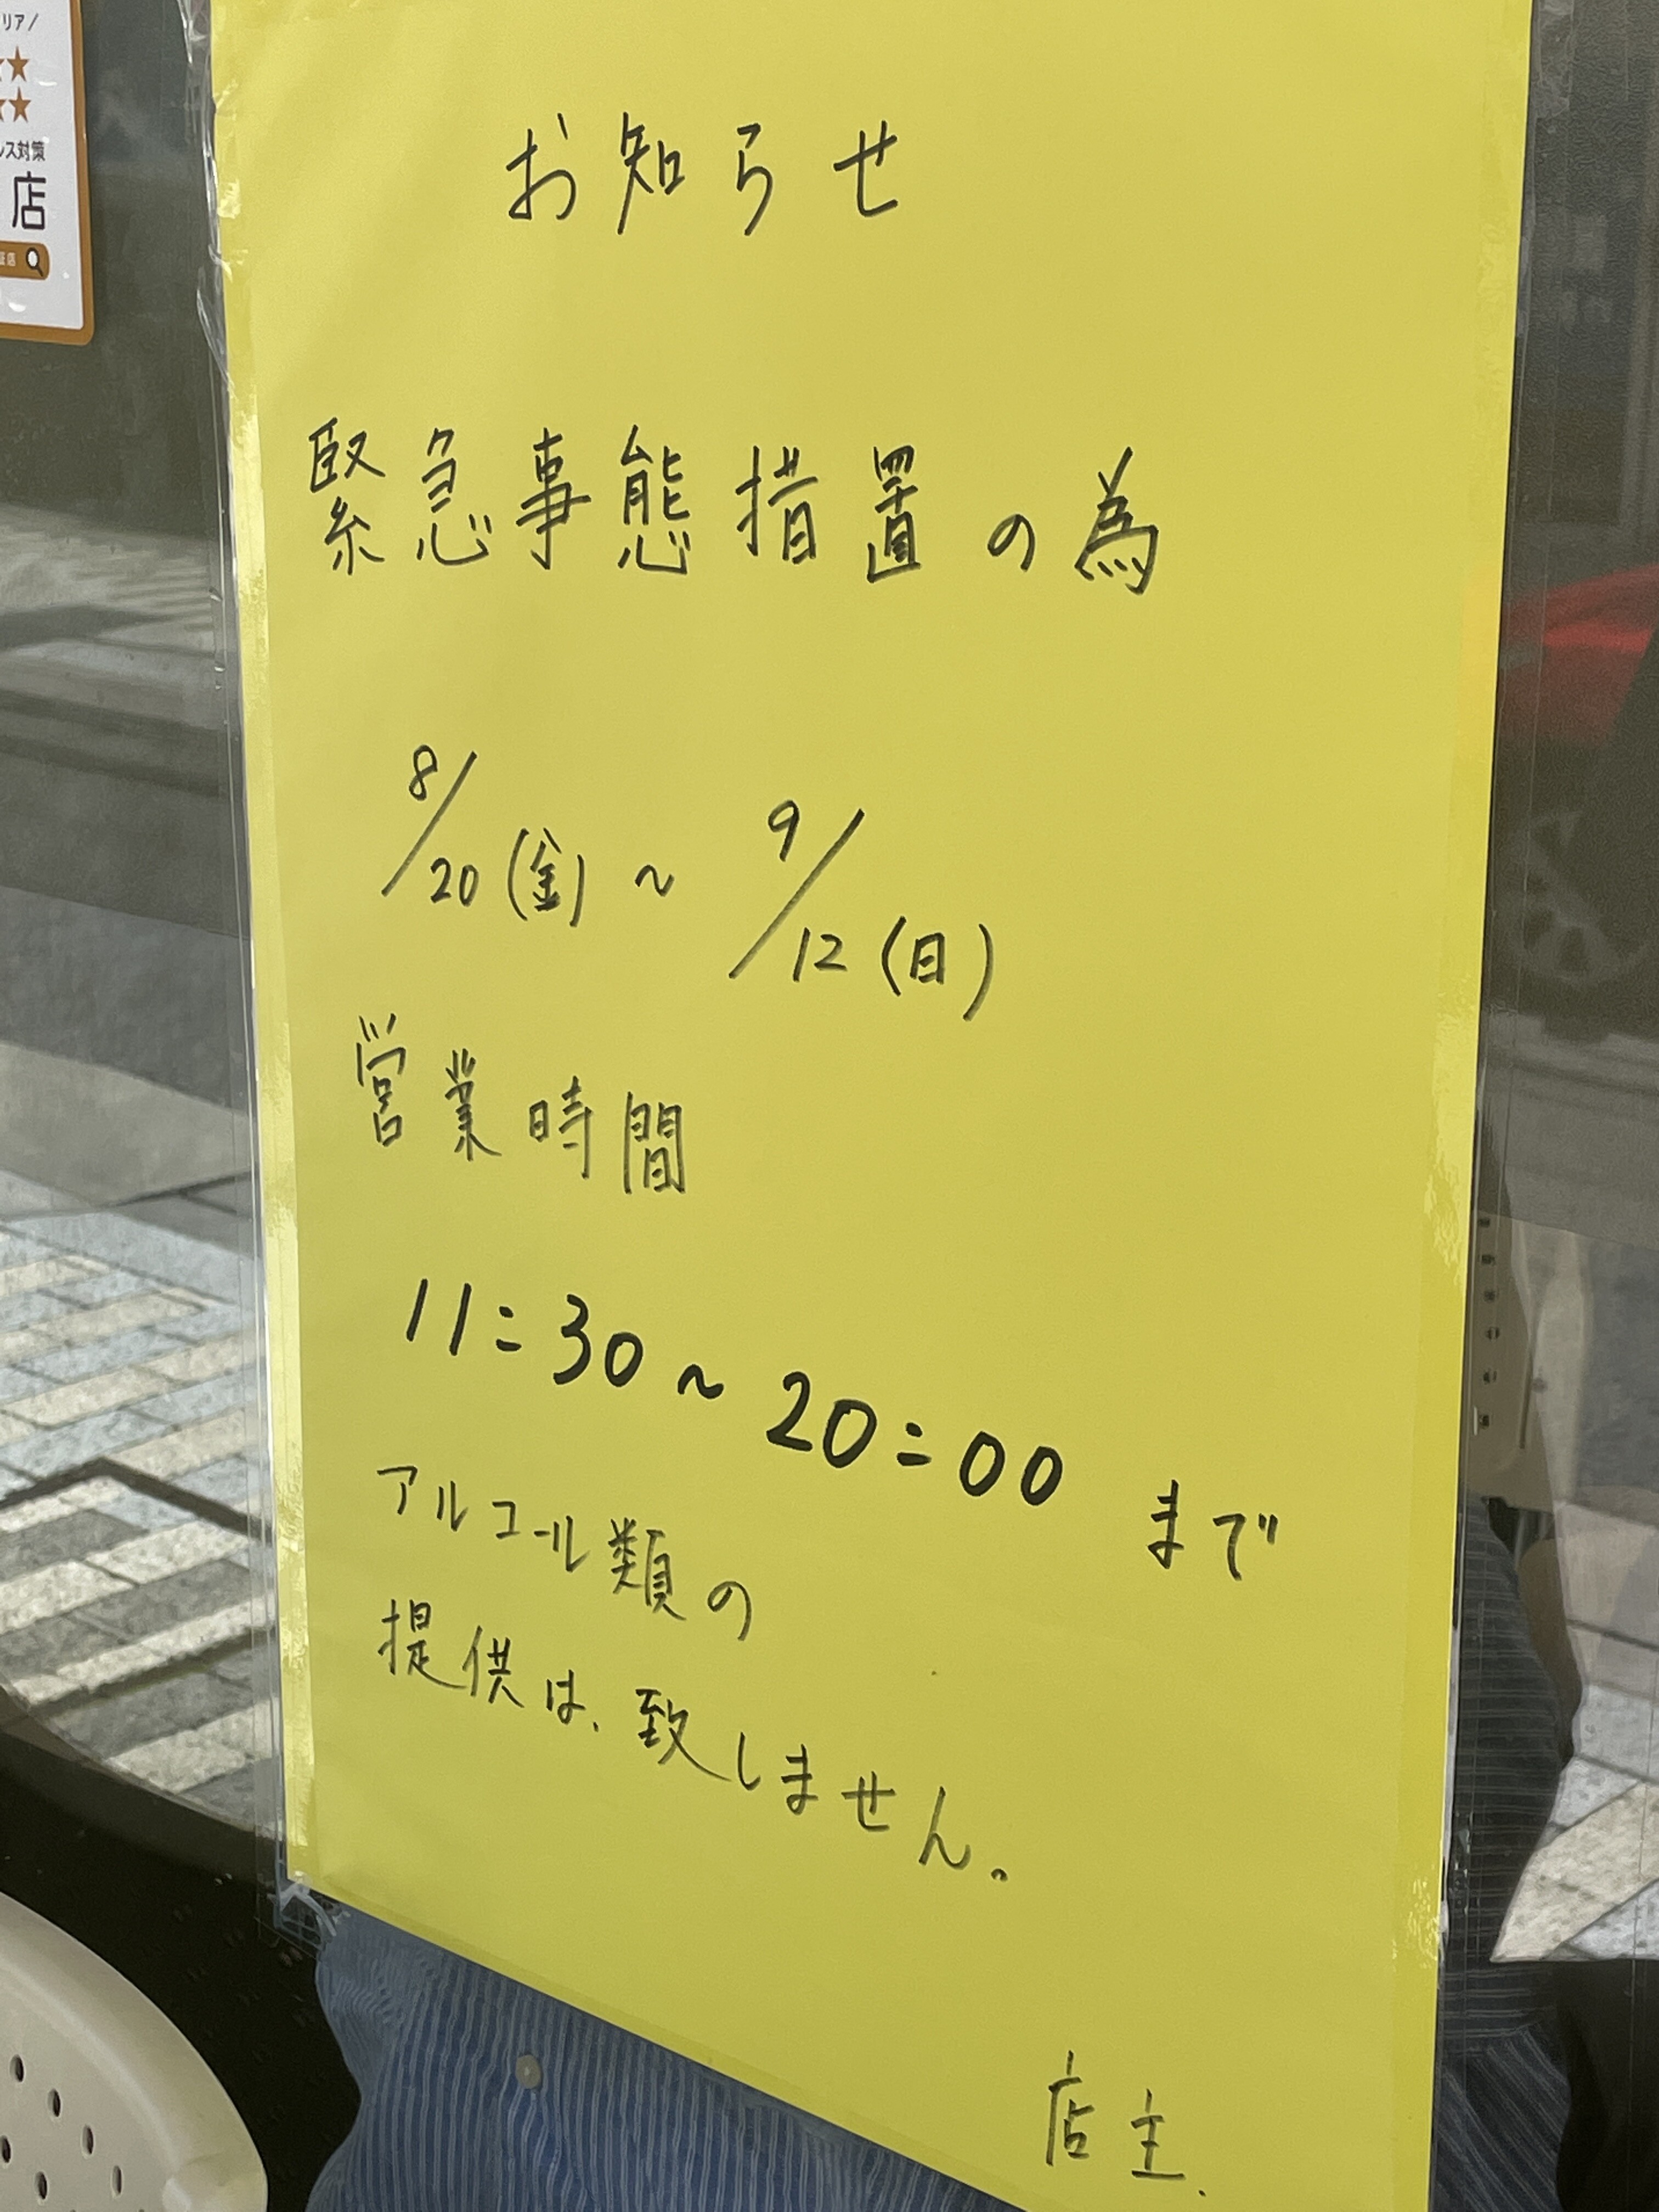 リア/
★★
★★
ルス対策
店
証店
お知らせ
緊急事態措置の為
8/20(金)~9/12(日)
営業時間
11:30~20:00まで
アルコール類の
提供は、致しません。
店主.